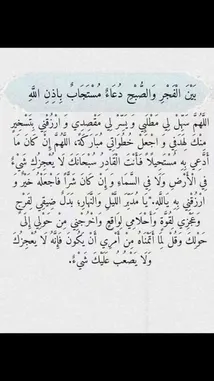 بَيْنَ الْفَجْرِ وَالصُّبْحِ دُعَاءٌ مُسْتَجَابٌ بِإِذْنِ اللَّهِ
اللَّهُمَّ سَهِّلْ لِي مَطْلَبِي وَ يَسِّرْ لِي مَقْصِدِي وَ ارْزُقْنِي بِتَسْخِيرٍ
مِنْكَ هَدَفِي وَ اجْعَلْ خُطُوَاتِي مُبَارَكَةً، اللَّهُمَّ إِنْ كَانَ مَا
أَدْعِي بِهِ مُسْتَحِيلاً فَأَنْتَ الْقَادِرُ سُبْحَانَكَ لَا يُعْجِزُكَ شَيْءٌ
فِي الْأَرْضِ وَلَا فِي السَّمَاءِ وَ إِنْ كَانَ شَرًّا فَاجْعَلْهُ خَيْرٌ وَ
ارْزُقْنِي بِهِ يَااللَّهِ."يَا مُدَبِّرَ اللَّيْلِ وَالنَّهَارِ، بَدِّلْ ضِيقِي لِفَرَجٍ
وَعَجْزِي لِقُوَّةٍ وَأَحْلَامِي لِوَاقِعٍ وَاخْرُجْنِي مِنْ حَوْلِي إِلَى
حَوْلِكَ وَقُلْ لِمَا أَتَمَنَّاهُ مِنْ أَمْرِي أَنْ يَكُونَ فَإِنَّهُ لَا يُعْجِزُكَ
وَلَا يَصْعُبُ عَلَيْكَ شَيْءٌ.